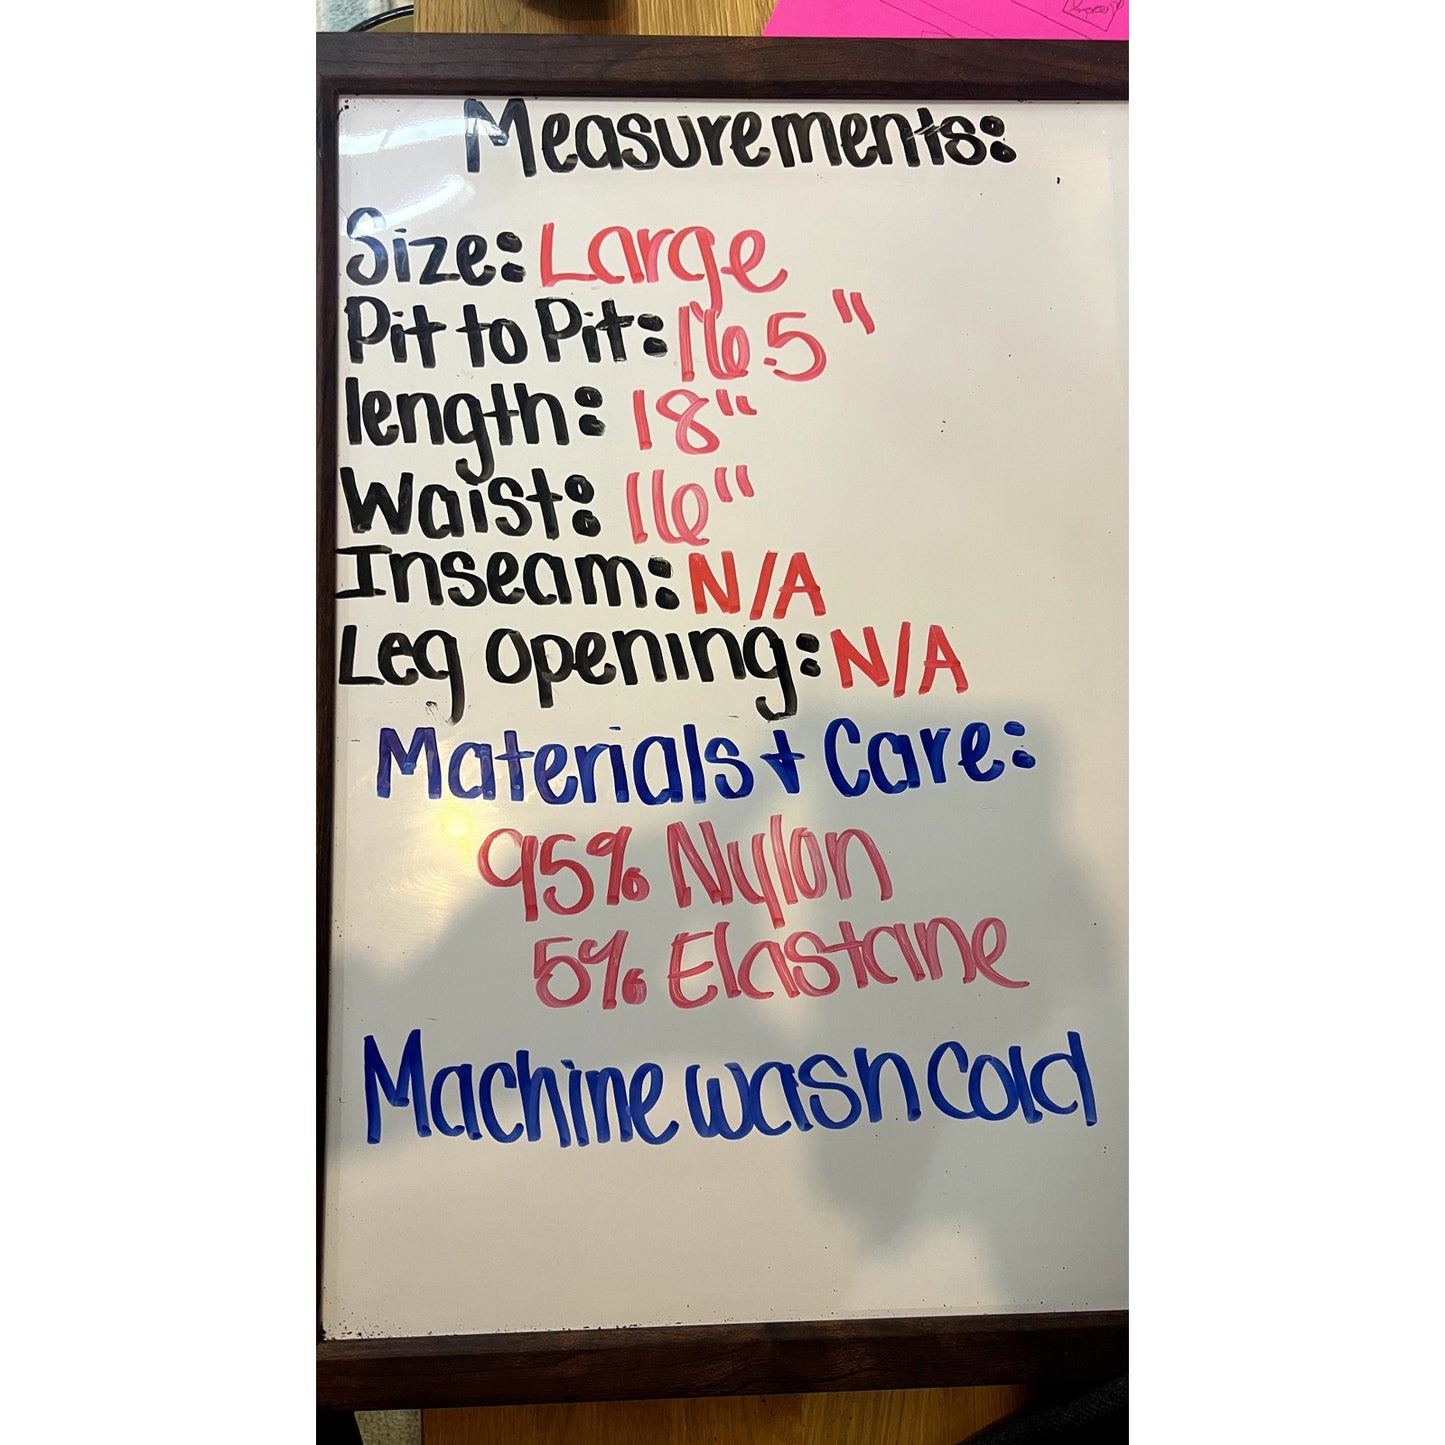 Measurements:
Size: Large
Pit to Pit: 16.5"
length: 18"
Waist: 16"
Inseam: N/A
Leg opening: N/A
Materials + Care:
95% Nylon
5% Elastane
Machine wash Cold